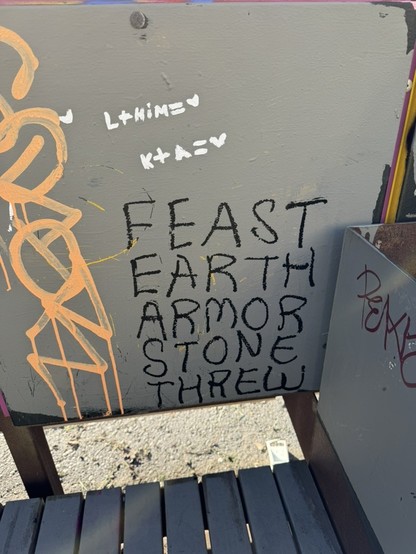 L+HiM=♥
K+A=♥
FEAST
EARTH
ARMOR
STONE
THREW